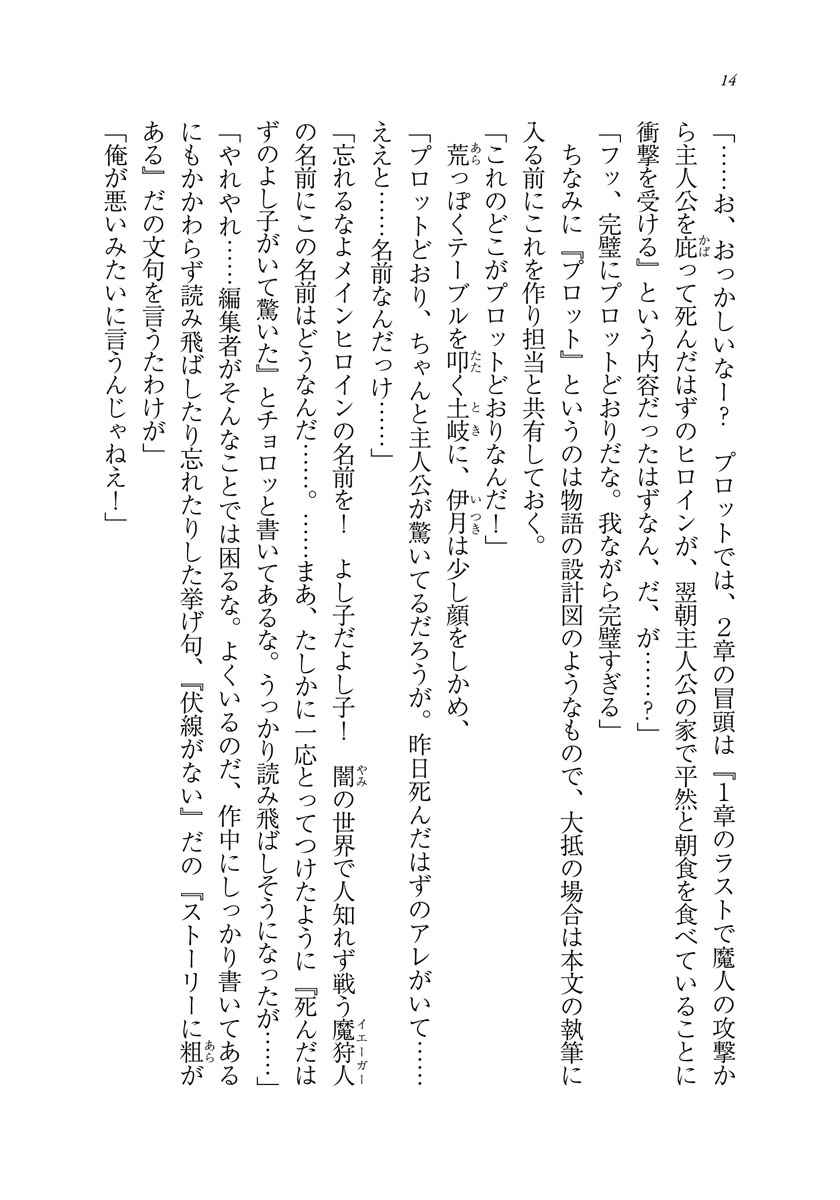 14
「……お、おっかしいなー？　プロットでは、２章の冒頭は『１章のラストで魔人の攻撃か
ら主人公を庇って死んだはずのヒロインが、翌朝主人公の家で平然と朝食を食べていることに
衝撃を受ける』という内容だったはずなん、だ、が……？」
「フッ、完璧にプロットどおりだな。我ながら完璧すぎる」
ちなみに『プロット』というのは物語の設計図のようなもので、大抵の場合は本文の執筆に
入る前にこれを作り担当と共有しておく。
「これのどこがプロットどおりなんだ！」
荒っぽくテーブルを叩く土岐に、伊月は少し顔をしかめ、
「プロットどおり、ちゃんと主人公が驚いてるだろうが。昨日死んだはずのアレがいて……
ええと……名前なんだっけ……」
「忘れるなよメインヒロインの名前を！　よし子だよし子！　闇の世界で人知れず戦う魔狩人
の名前にこの名前はどうなんだ……。……まあ、たしかに一応とってつけたように『死んだは
ずのよし子がいて驚いた』とチョロッと書いてあるな。うっかり読み飛ばしそうになったが……」
「やれやれ……編集者がそんなことでは困るな。よくいるのだ、作中にしっかり書いてある
にもかかわらず読み飛ばしたり忘れたりした挙げ句、『伏線がない』だの『ストーリーに粗が
ある』だの文句を言うたわけが」
「俺が悪いみたいに言うんじゃねえ！」